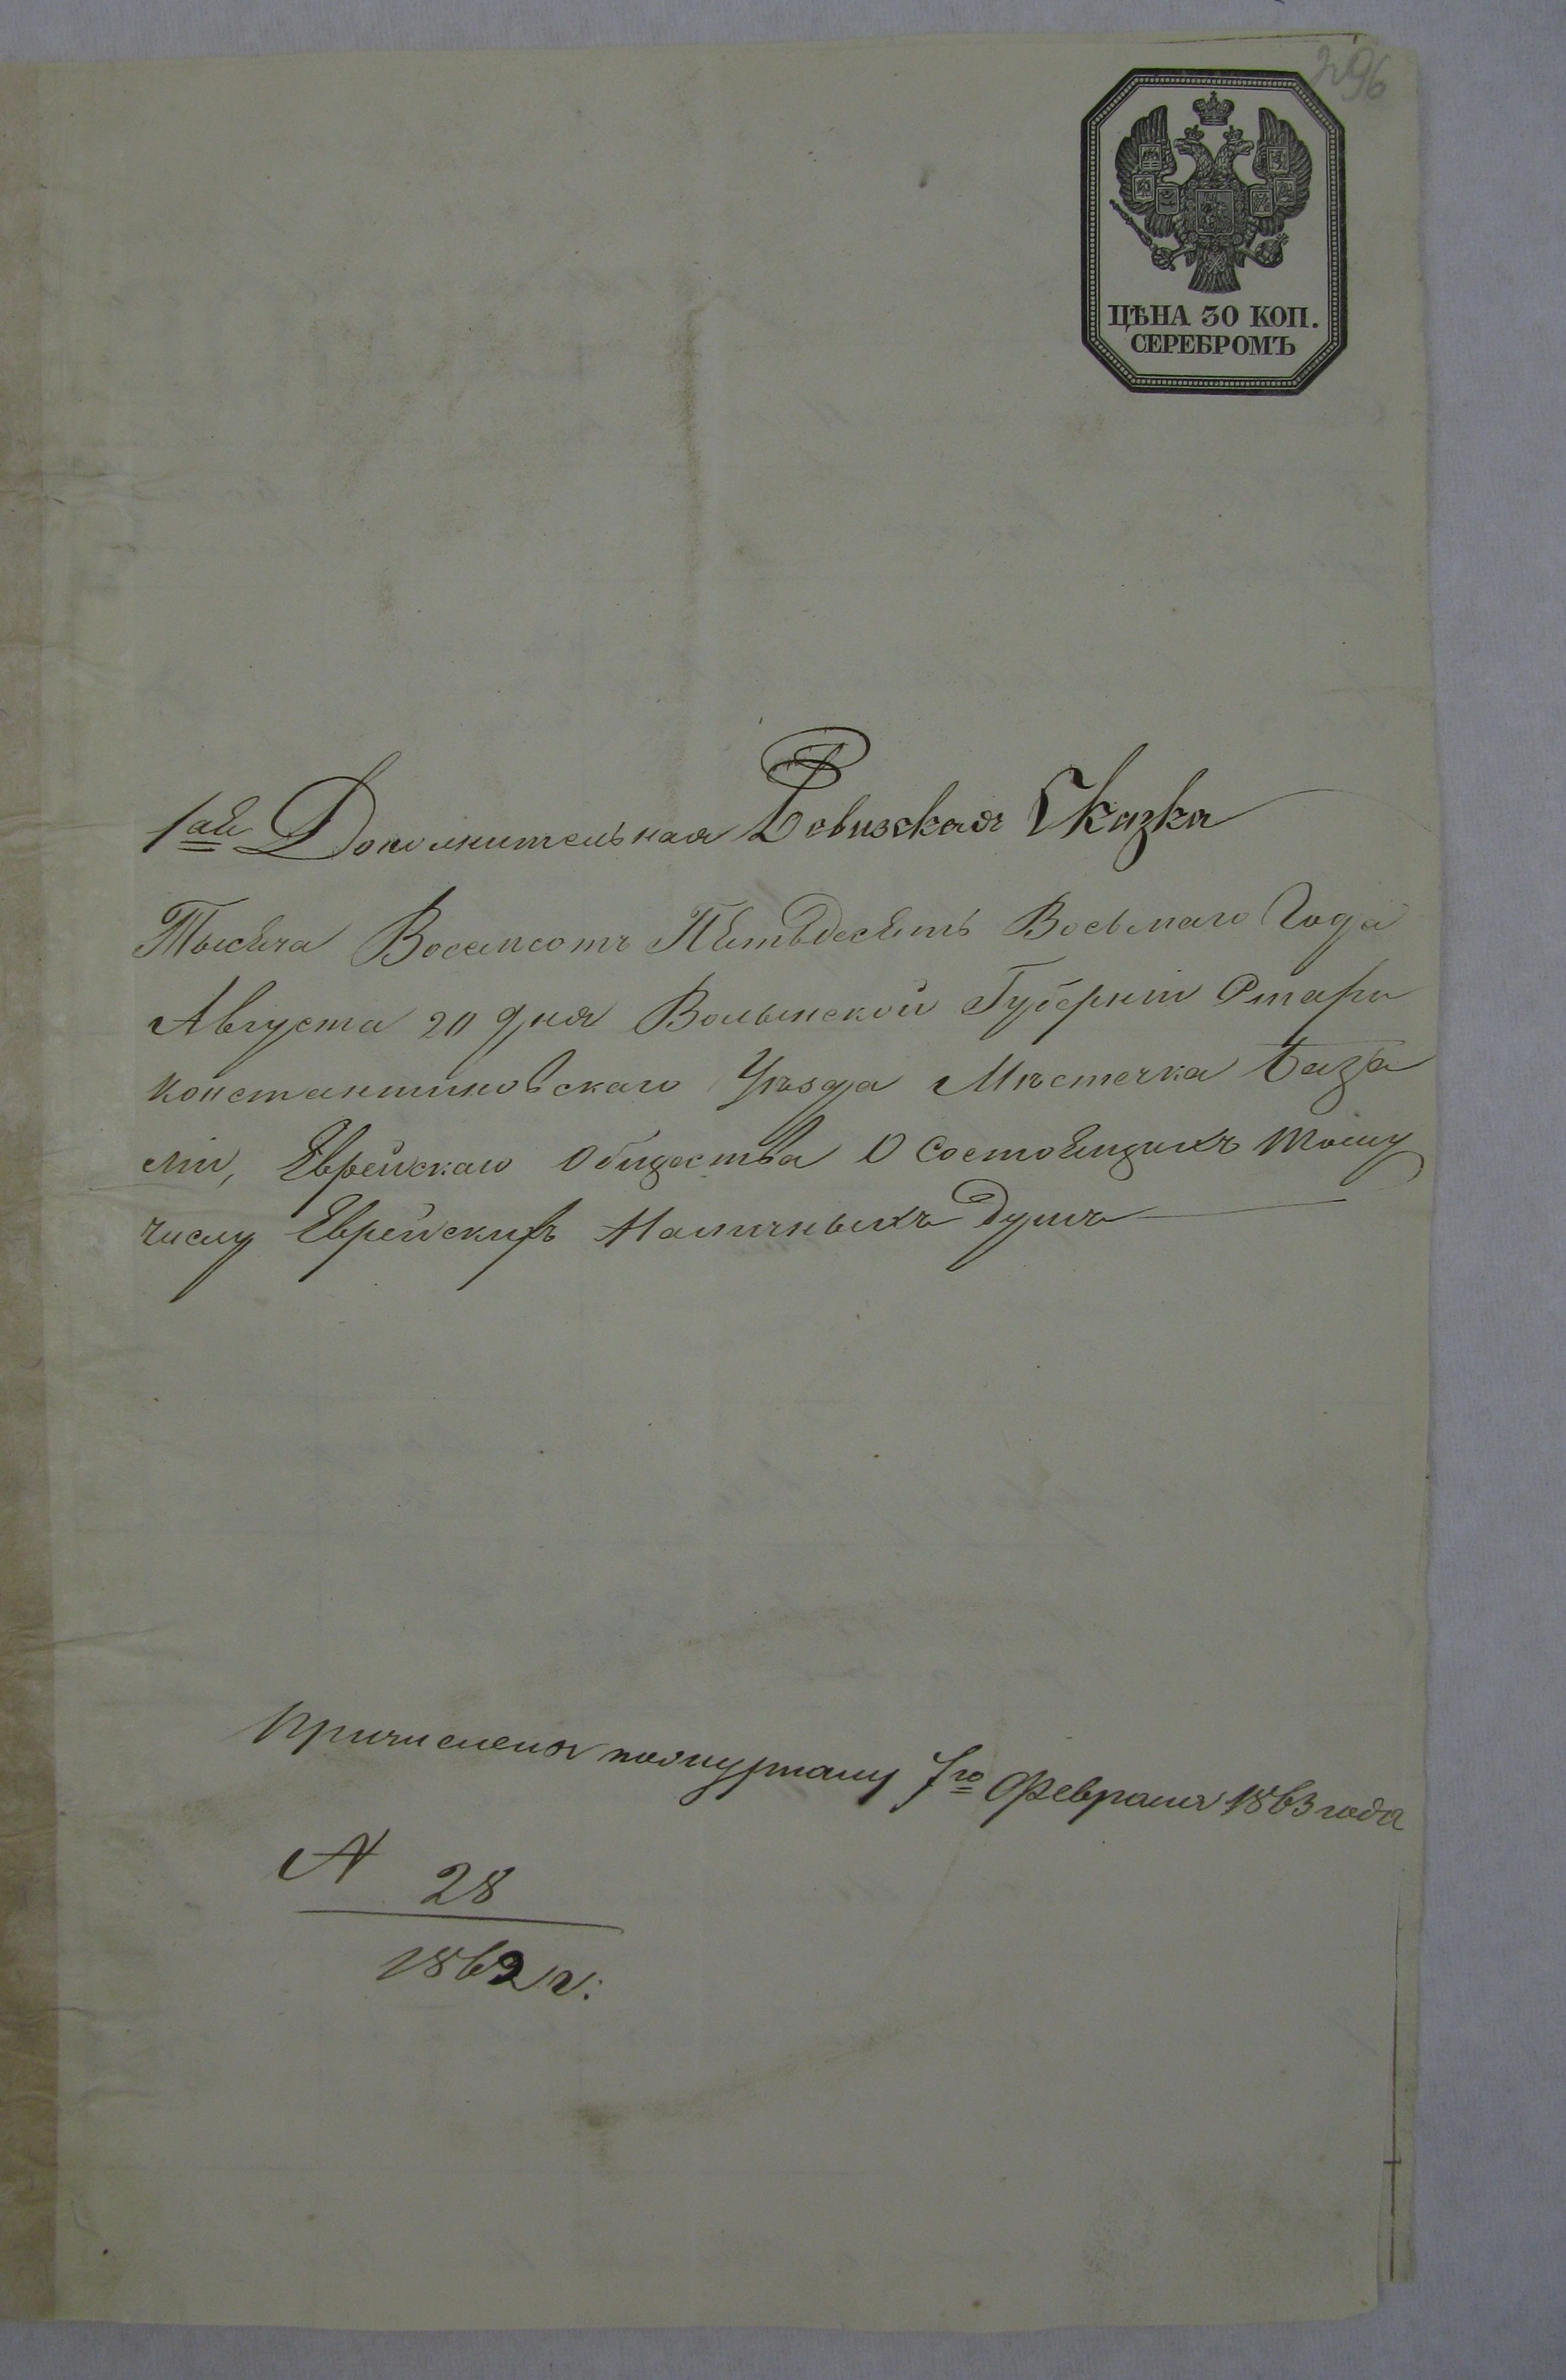 296
ЦѢНА 30 КОП.
СЕРЕБРОМЪ
1ая Дополнительная Ревизская Сказка
Тысяча Восемсотъ Пятьдесятъ Восьмаго Года
Августа 20 дня Волынской Губерніи Старо
константиновскаго Уѣзда Мѣстечка База
ліи, Еврейскаго Общества О Состоящихъ тому
числу Еврейскихъ Наличныхъ Душъ
Причисления 7го Февраля 1863 года
28
1862 г.